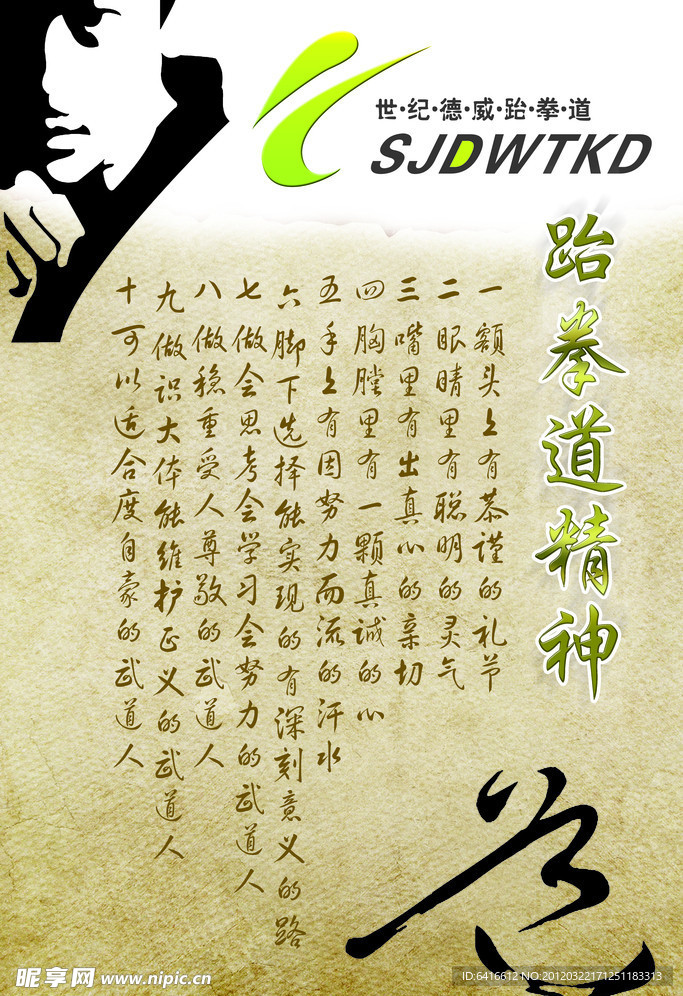 世·纪·德·威·跆·拳·道
SJDWTKD
跆拳道精神
一额头上有恭谨的礼节
二眼睛里有聪明的灵气
三嘴里有出真心的亲切
四胸膛里有一颗真诚的心
五手上有因努力而流的汗水
六脚下选择能实现的有深刻意义的路
七做会思考会学习会努力的武道人
八做稳重受人尊敬的武道人
九做识大体能维护正义的武道人
十可以适合度自豪的武道人
道
昵享网 www.nipic.cn
ID:6416612 NO:20120322171251183313